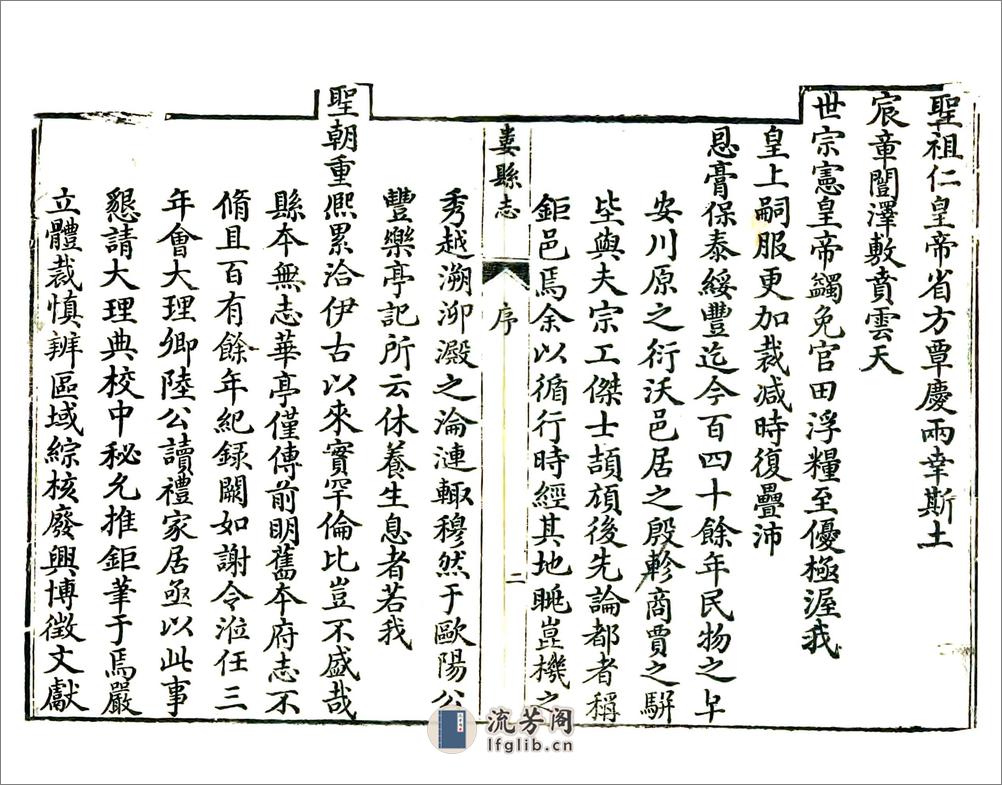 聖祖仁皇帝省方覃慶兩幸斯土
宸章誾澤敷賁雲天
世宗憲皇帝蠲免官田浮糧至優極渥我
皇上嗣服更加裁減時復疊沛
恩膏保泰綏豐迄今百四十餘年民物之阜
安川原之衍沃邑居之殷軫商賈之駢
坒與夫宗工傑士頡頏後先論都者稱
鉅邑焉余以循行時經其地眺崑機之
婁縣志
序
二
秀越溯泖澱之淪漣輙穆然于歐陽公
豐樂亭記所云休養生息者若我
聖朝重熙累洽伊古以來實罕倫比豈不盛哉
縣本無志華亭僅傳前明舊本府志不
脩且百有餘年紀録闕如謝令涖任三
年會大理卿陸公讀禮家居亟以此事
懇請大理典校中秘允推鉅筆于焉嚴
立體裁慎辨區域綜核廢興博徵文獻
流芳阁
lfglib.cn